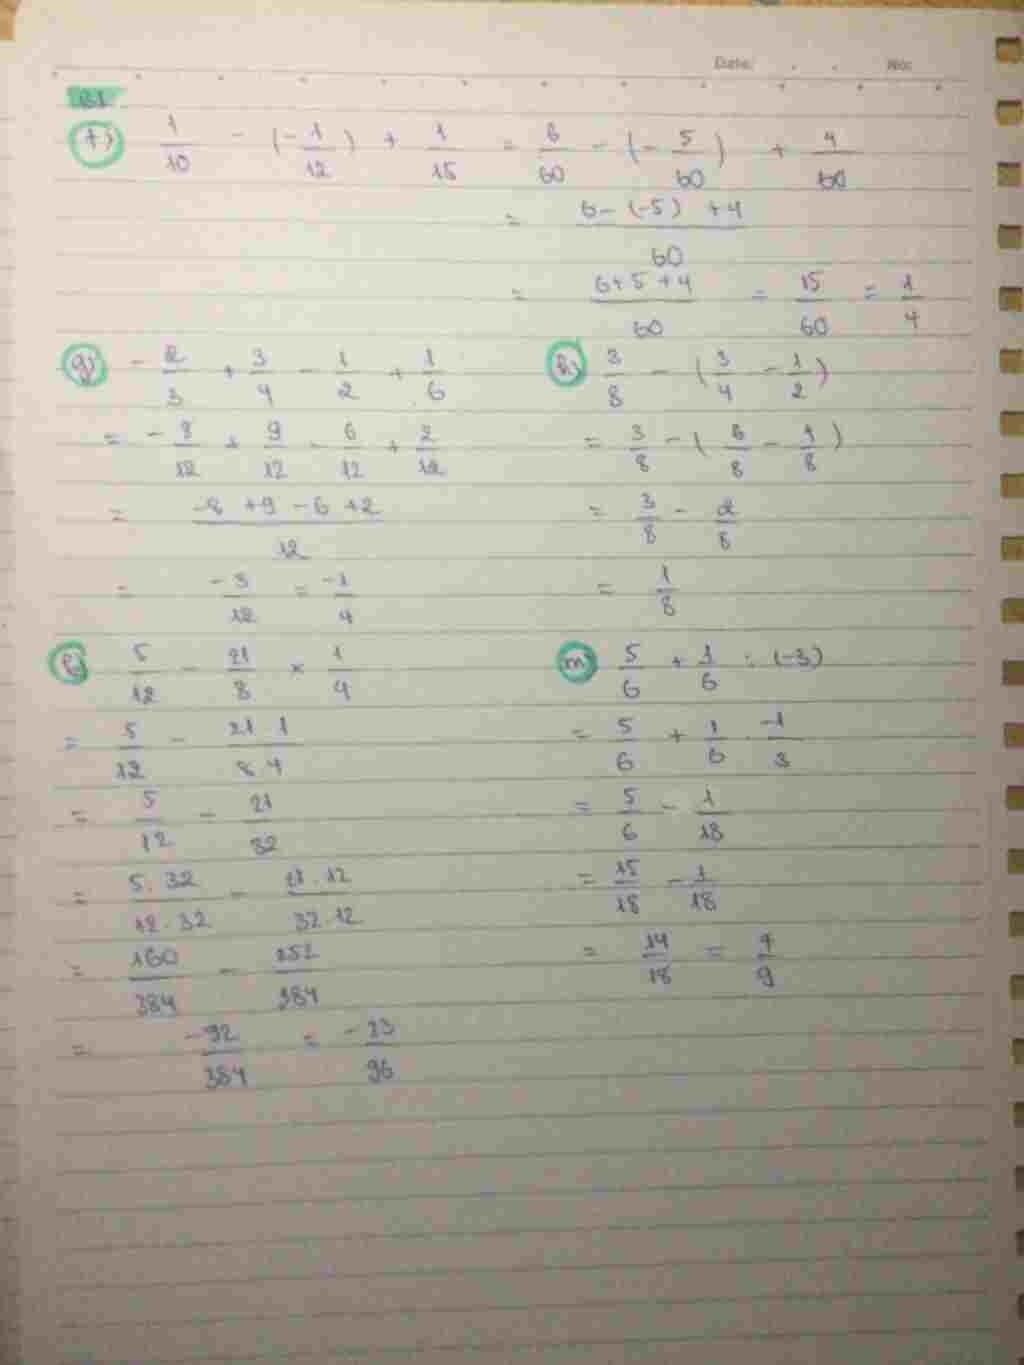 Date: No:
B1
f) 1/10 - (-1/12) + 1/15 = 6/60 - (-5/60) + 4/60
= (6-(-5)+4)/60
= (6+5+4)/60 = 15/60 = 1/4
g) -2/3 + 3/4 - 1/2 + 1/6
= -8/12 + 9/12 - 6/12 + 2/12
= (-8+9-6+2)/12
= -3/12 = -1/4
h) 3/8 - (3/4 - 1/2)
= 3/8 - (6/8 - 4/8)
= 3/8 - 2/8
= 1/8
5/12 - 21/8 × 1/4
= 5/12 - (21 1)/(8 4)
= 5/12 - 21/32
= (5.32)/(12.32) - (21.12)/(32.12)
= 160/384 - 252/384
= -92/384 = -23/96
m) 5/6 + 1/6 : (-3)
= 5/6 + 1/6 . -1/3
= 5/6 - 1/18
= 15/18 - 1/18
= 14/18 = 7/9